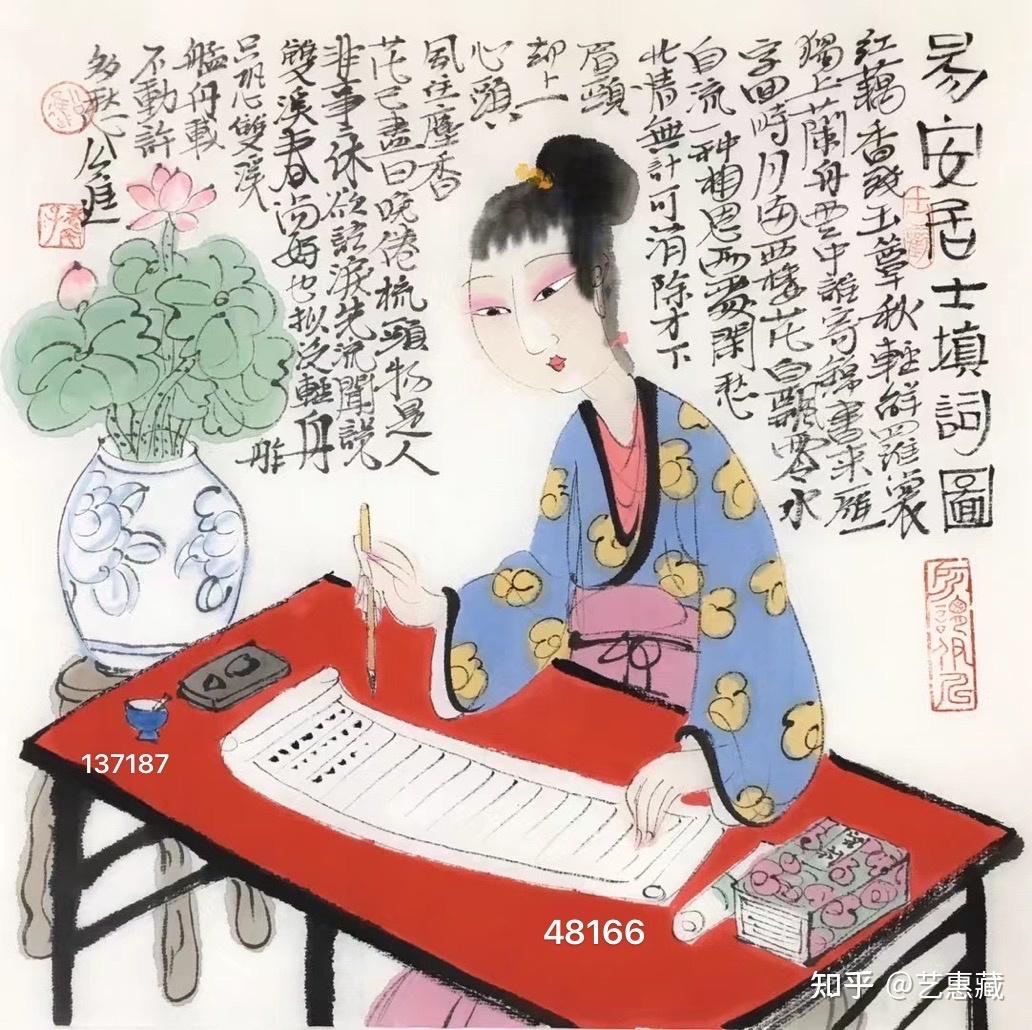 易安居士填詞圖
紅藕香殘玉簟秋輕解羅裳
獨上蘭舟雲中誰寄錦書來雁
字回時月滿西樓花自飄零水
自流一种相思兩處閑愁
此情無計可消除才下
眉頭
却上
心頭
風住塵香
花已盡日晚倦梳頭物是人
非事事休欲語淚先流聞說
雙溪春尚好也拟泛輕舟
只恐雙溪
舴
艋舟載
不動許
多愁
公進
137187
48166
知乎 @艺惠藏